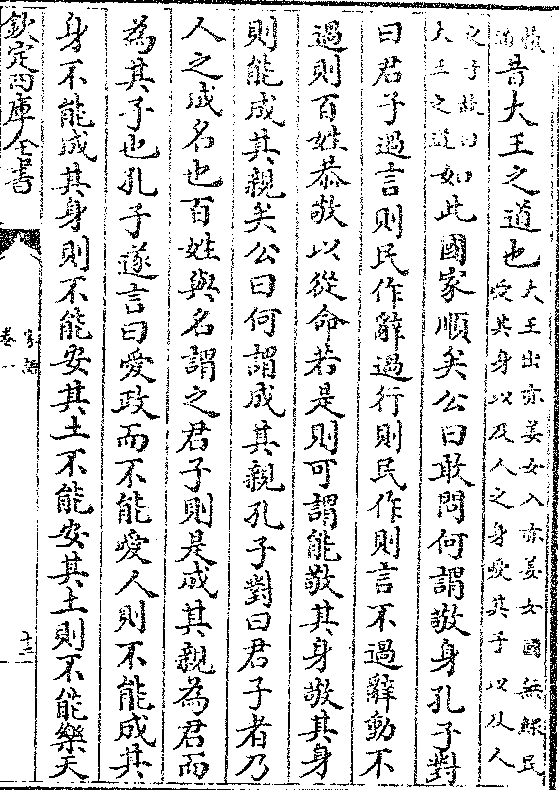 滿昔大王之道也大王出亦姜女入亦姜女國無鰥民愛其身以及人之身愛其子以及人
之子故曰大王之道如此國家順矣公曰敢問何謂敬身孔子對
曰君子過言則民作辭過行則民作則言不過辭動不
過則百姓恭敬以從命若是則可謂能敬其身敬其身
則能成其親矣公曰何謂成其親孔子對曰君子者乃
人之成名也百姓與名謂之君子則是成其親為君而
為其子也孔子遂言曰愛政而不能愛人則不能成其
身不能成其身則不能安其土不能安其土則不能樂天
欽定四庫全書
家語
卷一
十三